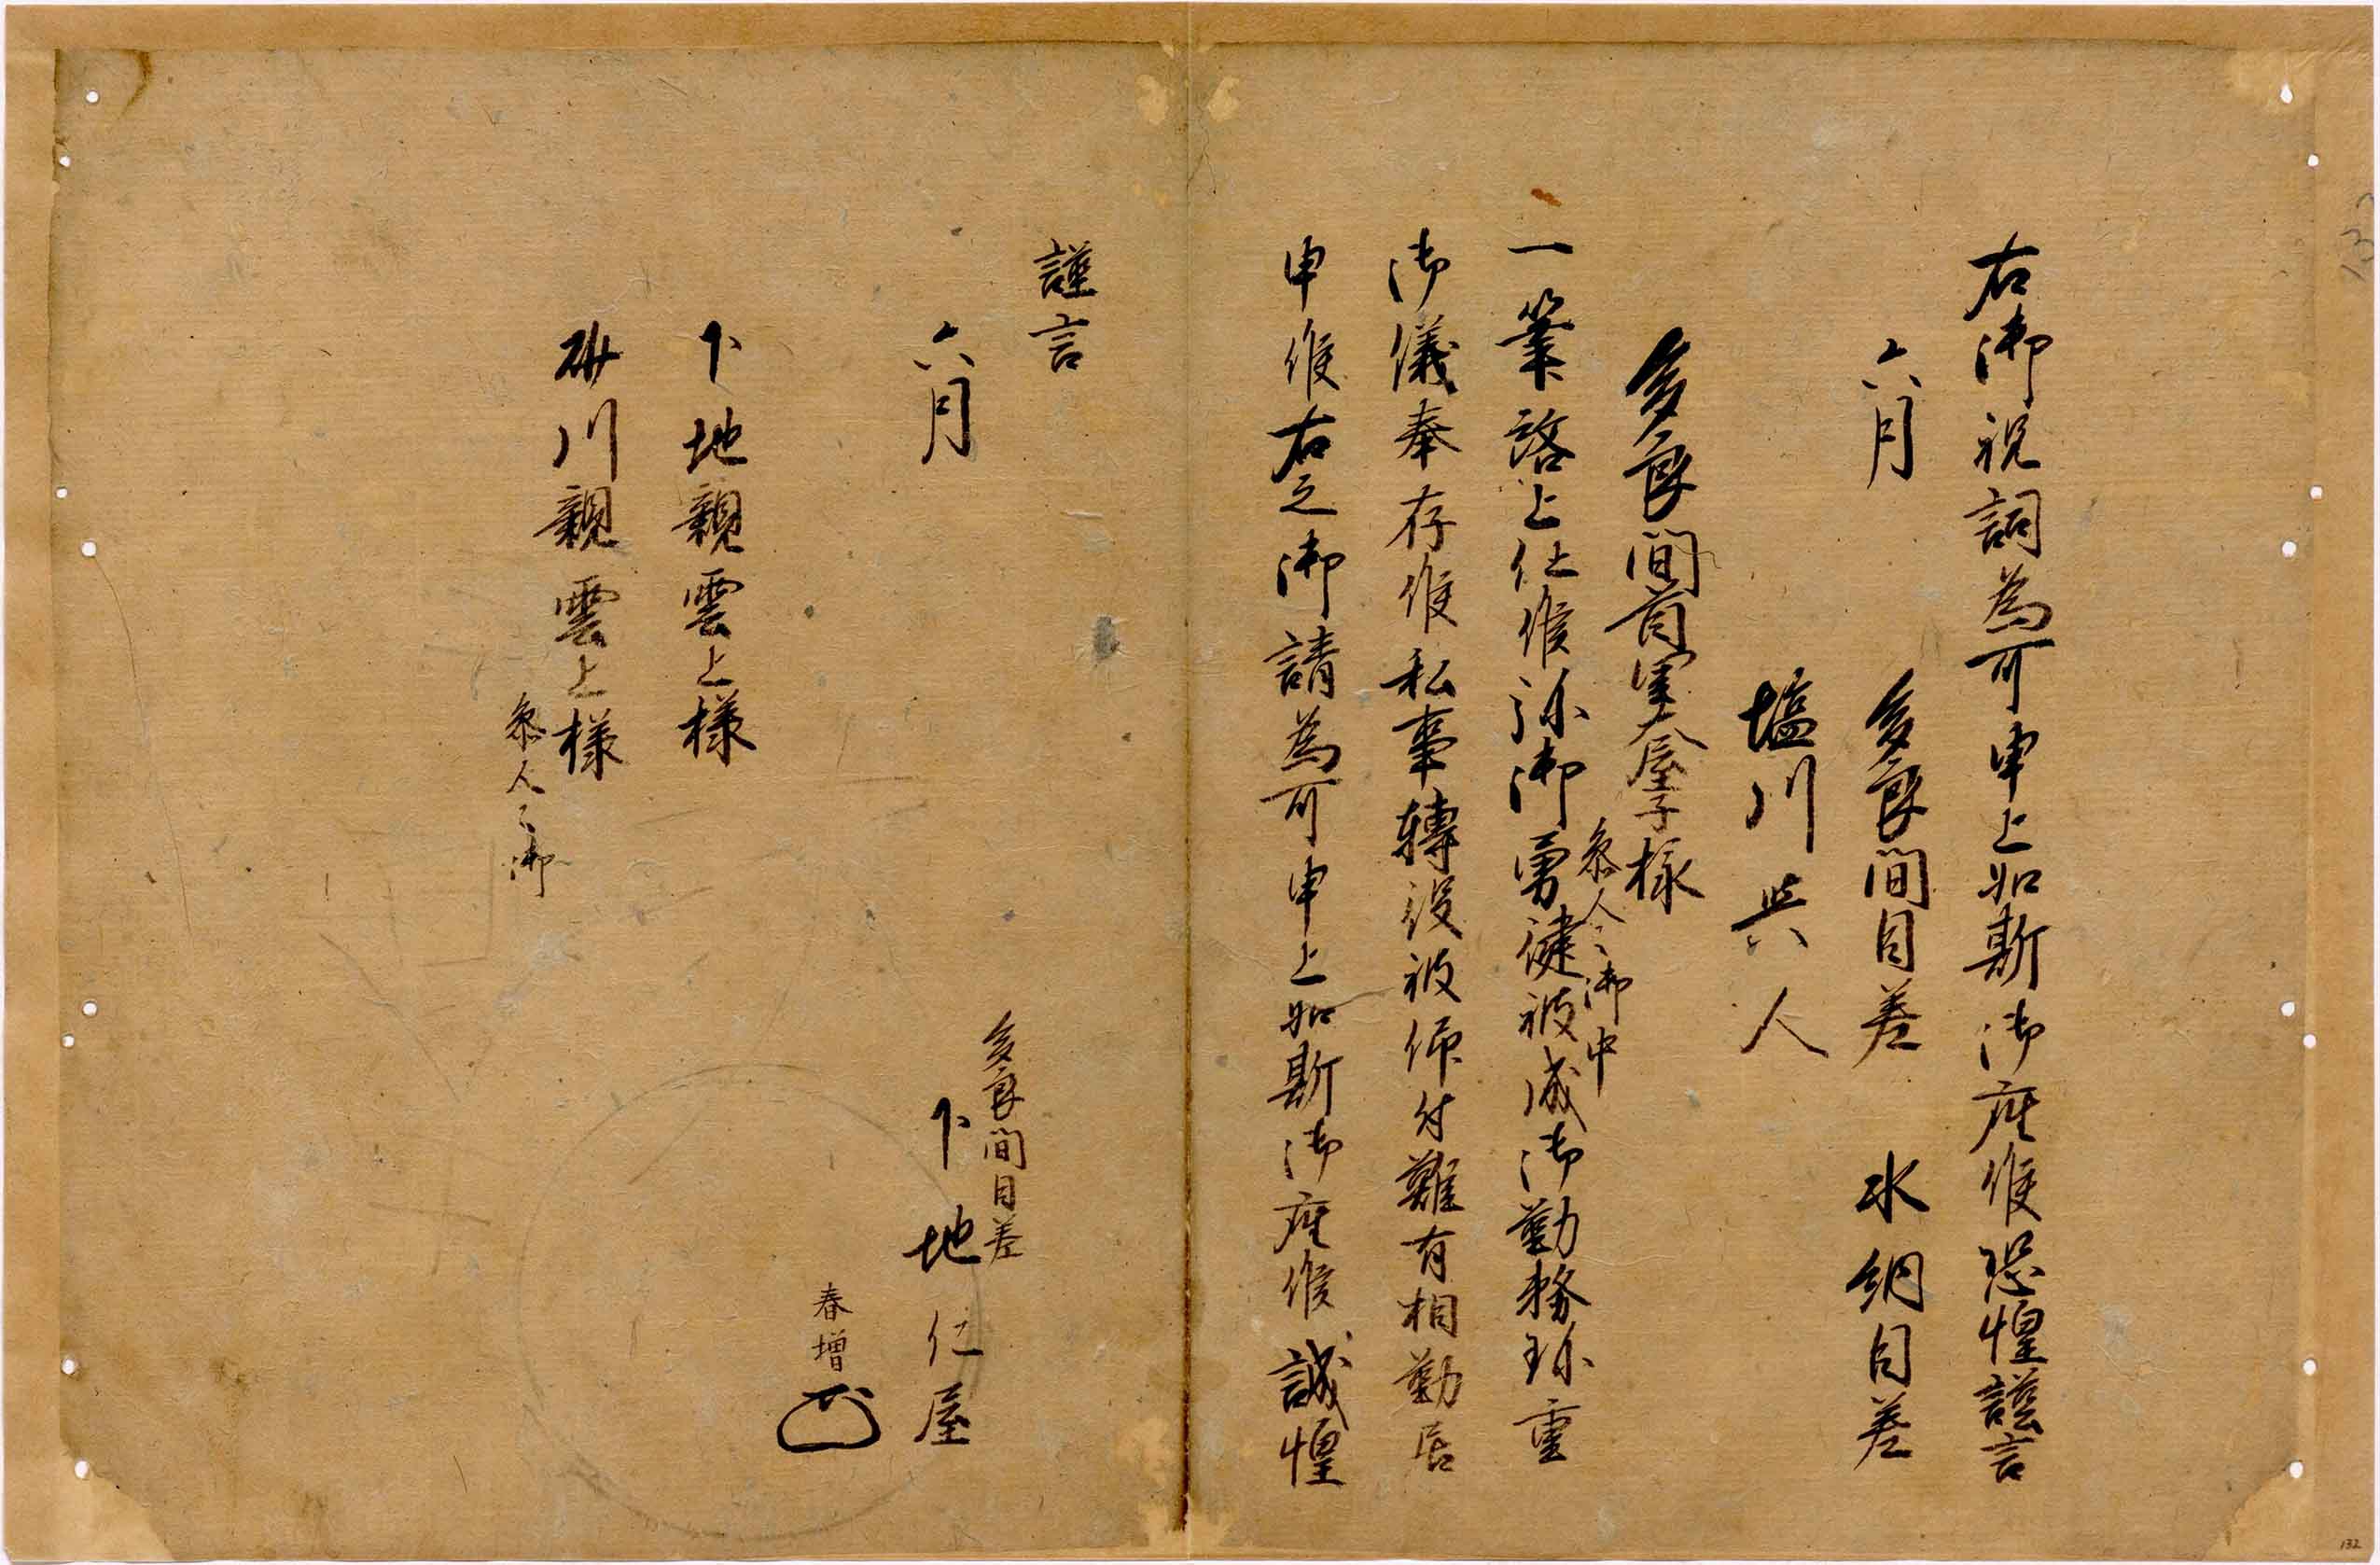 右御祝詞為可申上如斯御座候恐惶謹言
六月　多良間目差　水納目差
塩川与人
多良間首里大屋子様
参人々御中
一筆啓上仕候弥御勇健被成御勤務珎重
御儀奉存候私事轉役被仰付難有相勤居
申候右之御請為可申上如斯御座候誠惶
謹言
多良間目差
六月　下地仁屋
春増
下地親雲上様
砂川親雲上様
参人々御
132